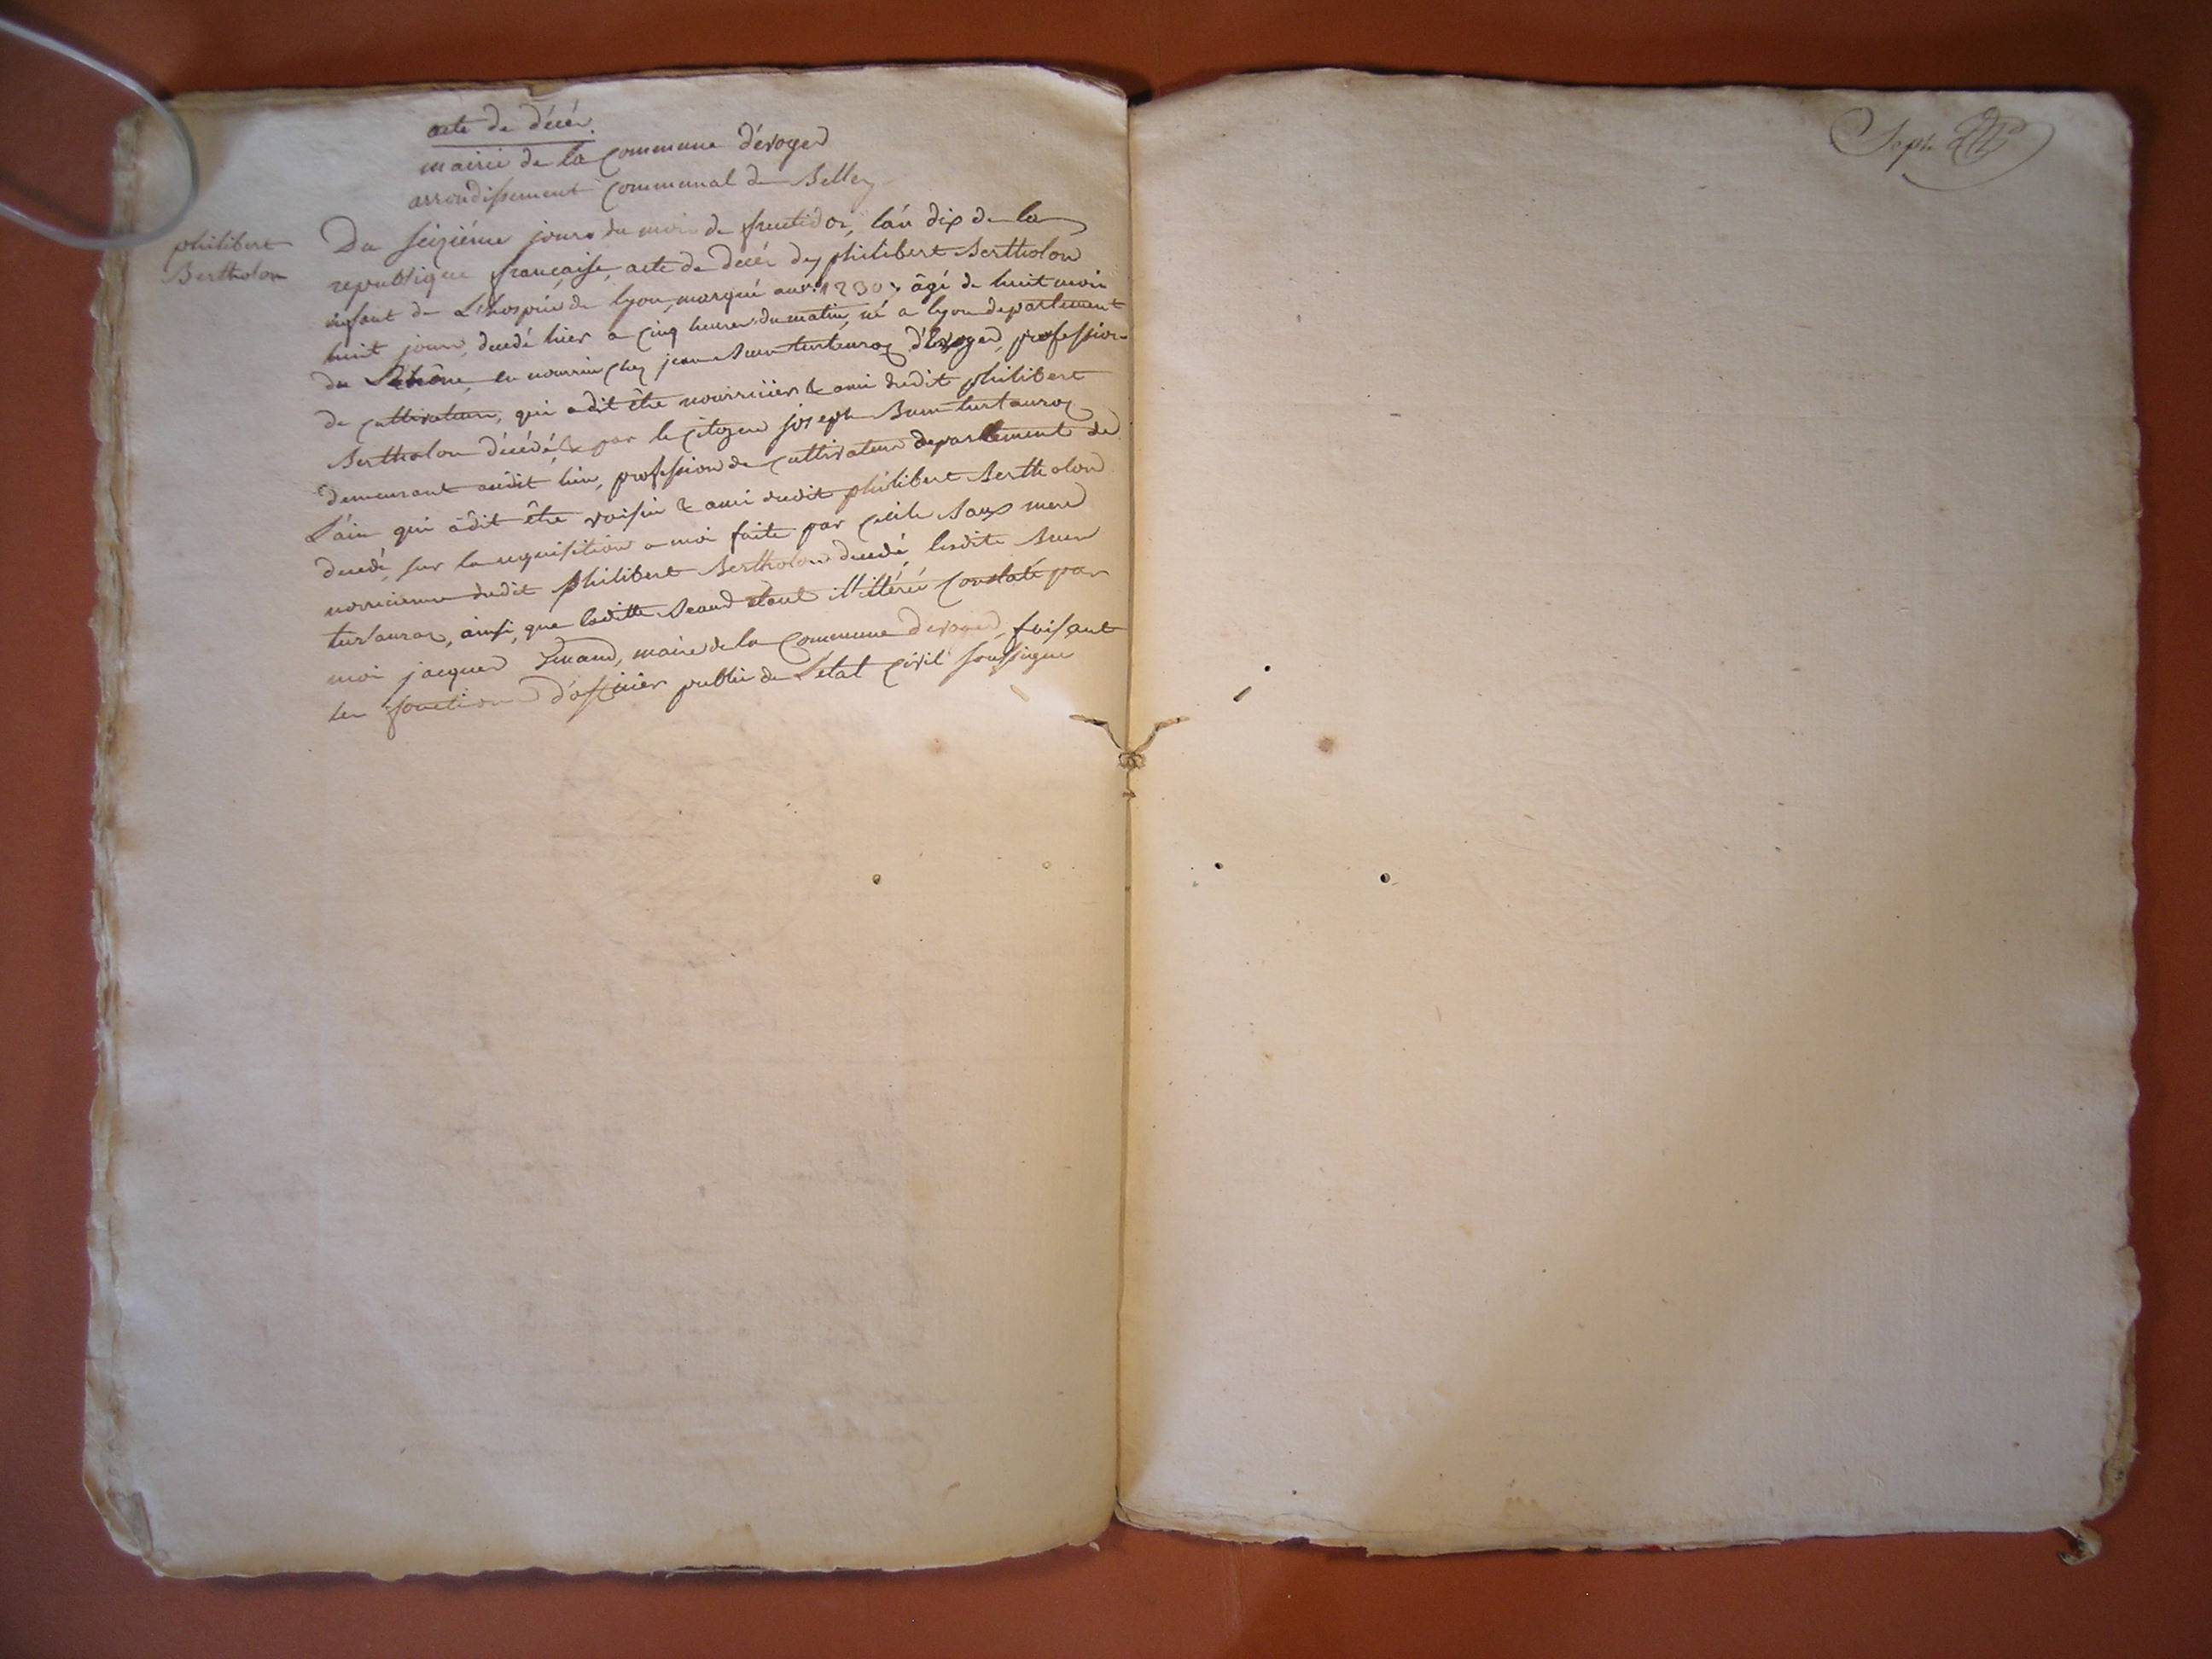 acte de décés
mairie de la commune d'évoges
arrondissement communal de Belley
philibert
Bertholon
Du seiziéme jours du mois de fructidor, l'an dix de la
republique française, acte de décés de philibert Bertholon
enfant de L'hospice de lyon, marqué au n.° âgé de huit mois
huit jours, decedé hier a cinq heures du matin, né a lyon departement
du Rhône, en nourrice chez jean d'évoges, profession
de cultivateur, qui a dit être nourricier & ami dudit philibert
Bertholon décédé, & par le citoyen joseph
demeurant audit lieu, profession de cultivateur departement de
L'ain qui a dit être voisin & ami dudit philibert Bertholon
decedé, sur la requisition a moi faite par mere
nourriciere dudit philibert Bertholon decedé lesdits
ainsi, que laditte etant illitéré constaté par
moi jacques maire de la commune d'evoges, faisant
les fonctions d'officier public de L'etat civil soussigné
Sept